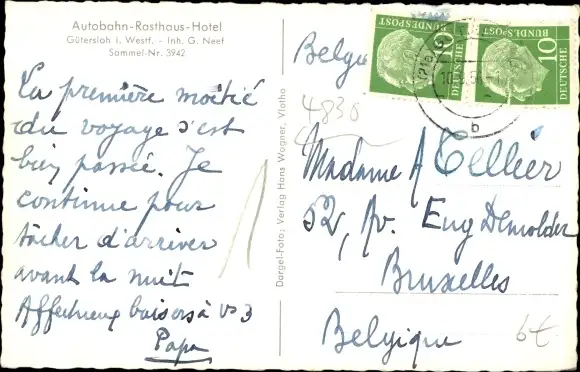 Autobahn-Rasthaus-Hotel
Gütersloh i. Westf. - Inh. G. Neef
Sammel-Nr. 3942
La première moitié
du voyage s'est
bien passée. Je
continue pour
tâcher d'arriver
avant la nuit
Affectueux baisers à vs 3
Papa
Dargel-Foto; Verlag Hans Wagner, Vlotho
Belgique
10
DEUTSCHE
BUNDESPOST
10
DEUTSCHE
BUNDESPOST
b
4830
Madame A Tellier
52, Av. Eug Demolder
Bruxelles
Belgique
6€